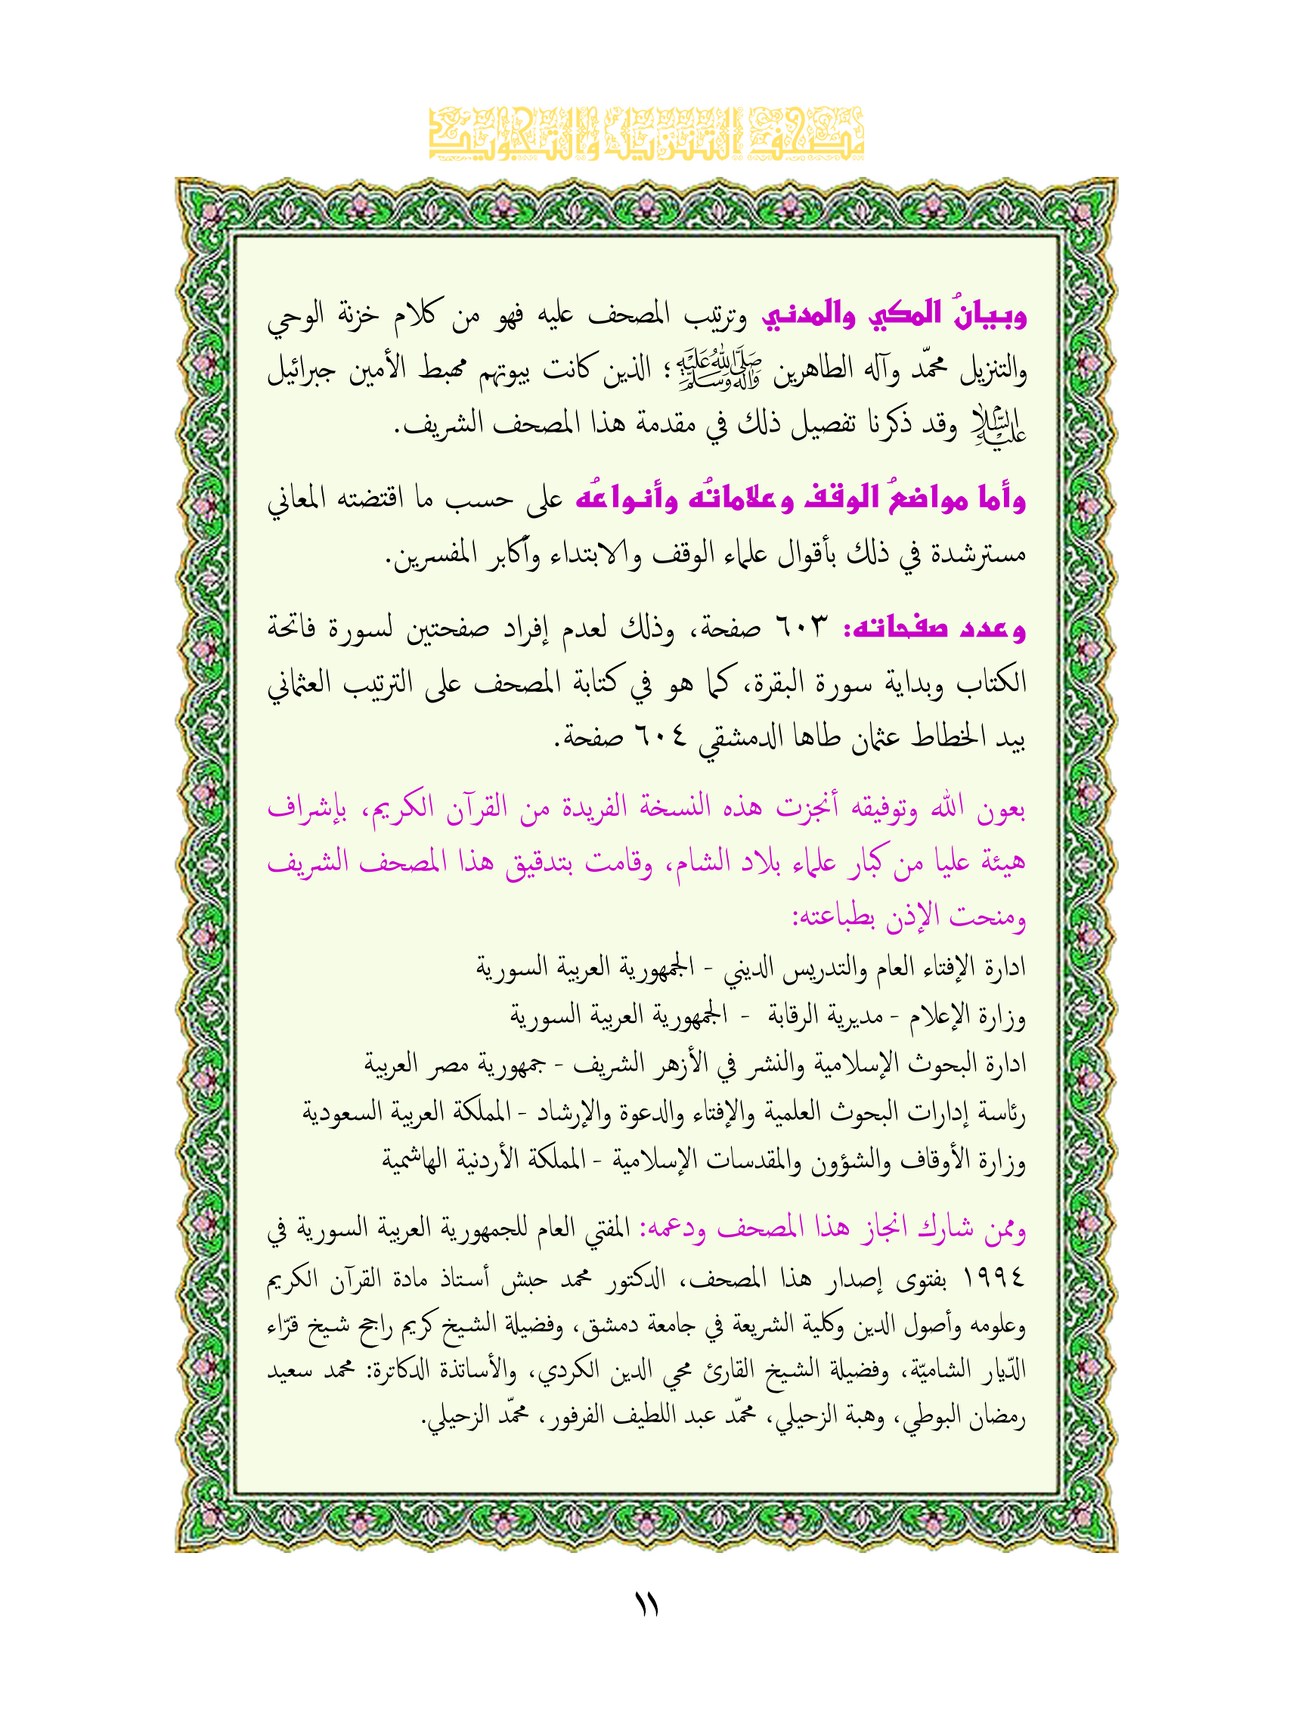 مصحف التنزيل والتدبر
وبيانُ المكي والمدني وترتيب المصحف عليه فهو من كلام خزنة الوحي
والتنزيل محمّد وآله الطاهرين صَلَّى اللهُ عَلَيْهِ وَآلِهِ وَسَلَّمَ؛ الذين كانت بيوتهم مهبط الأمين جبرائيل
عَلَيْهِ السَّلَام وقد ذكرنا تفصيل ذلك في مقدمة هذا المصحف الشريف.
وأما مواضعُ الوقف وعلاماتُه وأنواعُه على حسب ما اقتضته المعاني
مسترشدة في ذلك بأقوال علماء الوقف والابتداء وأكابر المفسرين.
وعدد صفحاته: ٦٠٣ صفحة، وذلك لعدم إفراد صفحتين لسورة فاتحة
الكتاب وبداية سورة البقرة، كما هو في كتابة المصحف على الترتيب العثماني
بيد الخطاط عثمان طاها الدمشقي ٦٠٤ صفحة.
بعون الله وتوفيقه أنجزت هذه النسخة الفريدة من القرآن الكريم، بإشراف
هيئة عليا من كبار علماء بلاد الشام، وقامت بتدقيق هذا المصحف الشريف
ومنحت الإذن بطباعته:
ادارة الإفتاء العام والتدريس الديني - الجمهورية العربية السورية
وزارة الإعلام - مديرية الرقابة - الجمهورية العربية السورية
ادارة البحوث الإسلامية والنشر في الأزهر الشريف - جمهورية مصر العربية
رئاسة إدارات البحوث العلمية والإفتاء والدعوة والإرشاد - المملكة العربية السعودية
وزارة الأوقاف والشؤون والمقدسات الإسلامية - المملكة الأردنية الهاشمية
وممن شارك انجاز هذا المصحف ودعمه: المفتي العام للجمهورية العربية السورية في
١٩٩٤ بفتوى إصدار هذا المصحف، الدكتور محمد حبش أستاذ مادة القرآن الكريم
وعلومه وأصول الدين وكلية الشريعة في جامعة دمشق، وفضيلة الشيخ كريم راجح شيخ قرّاء
الدّيار الشاميّة، وفضيلة الشيخ القارئ محي الدين الكردي، والأساتذة الدكاترة: محمد سعيد
رمضان البوطي، وهبة الزحيلي، محمّد عبد اللطيف الفرفور، محمّد الزحيلي.
١١